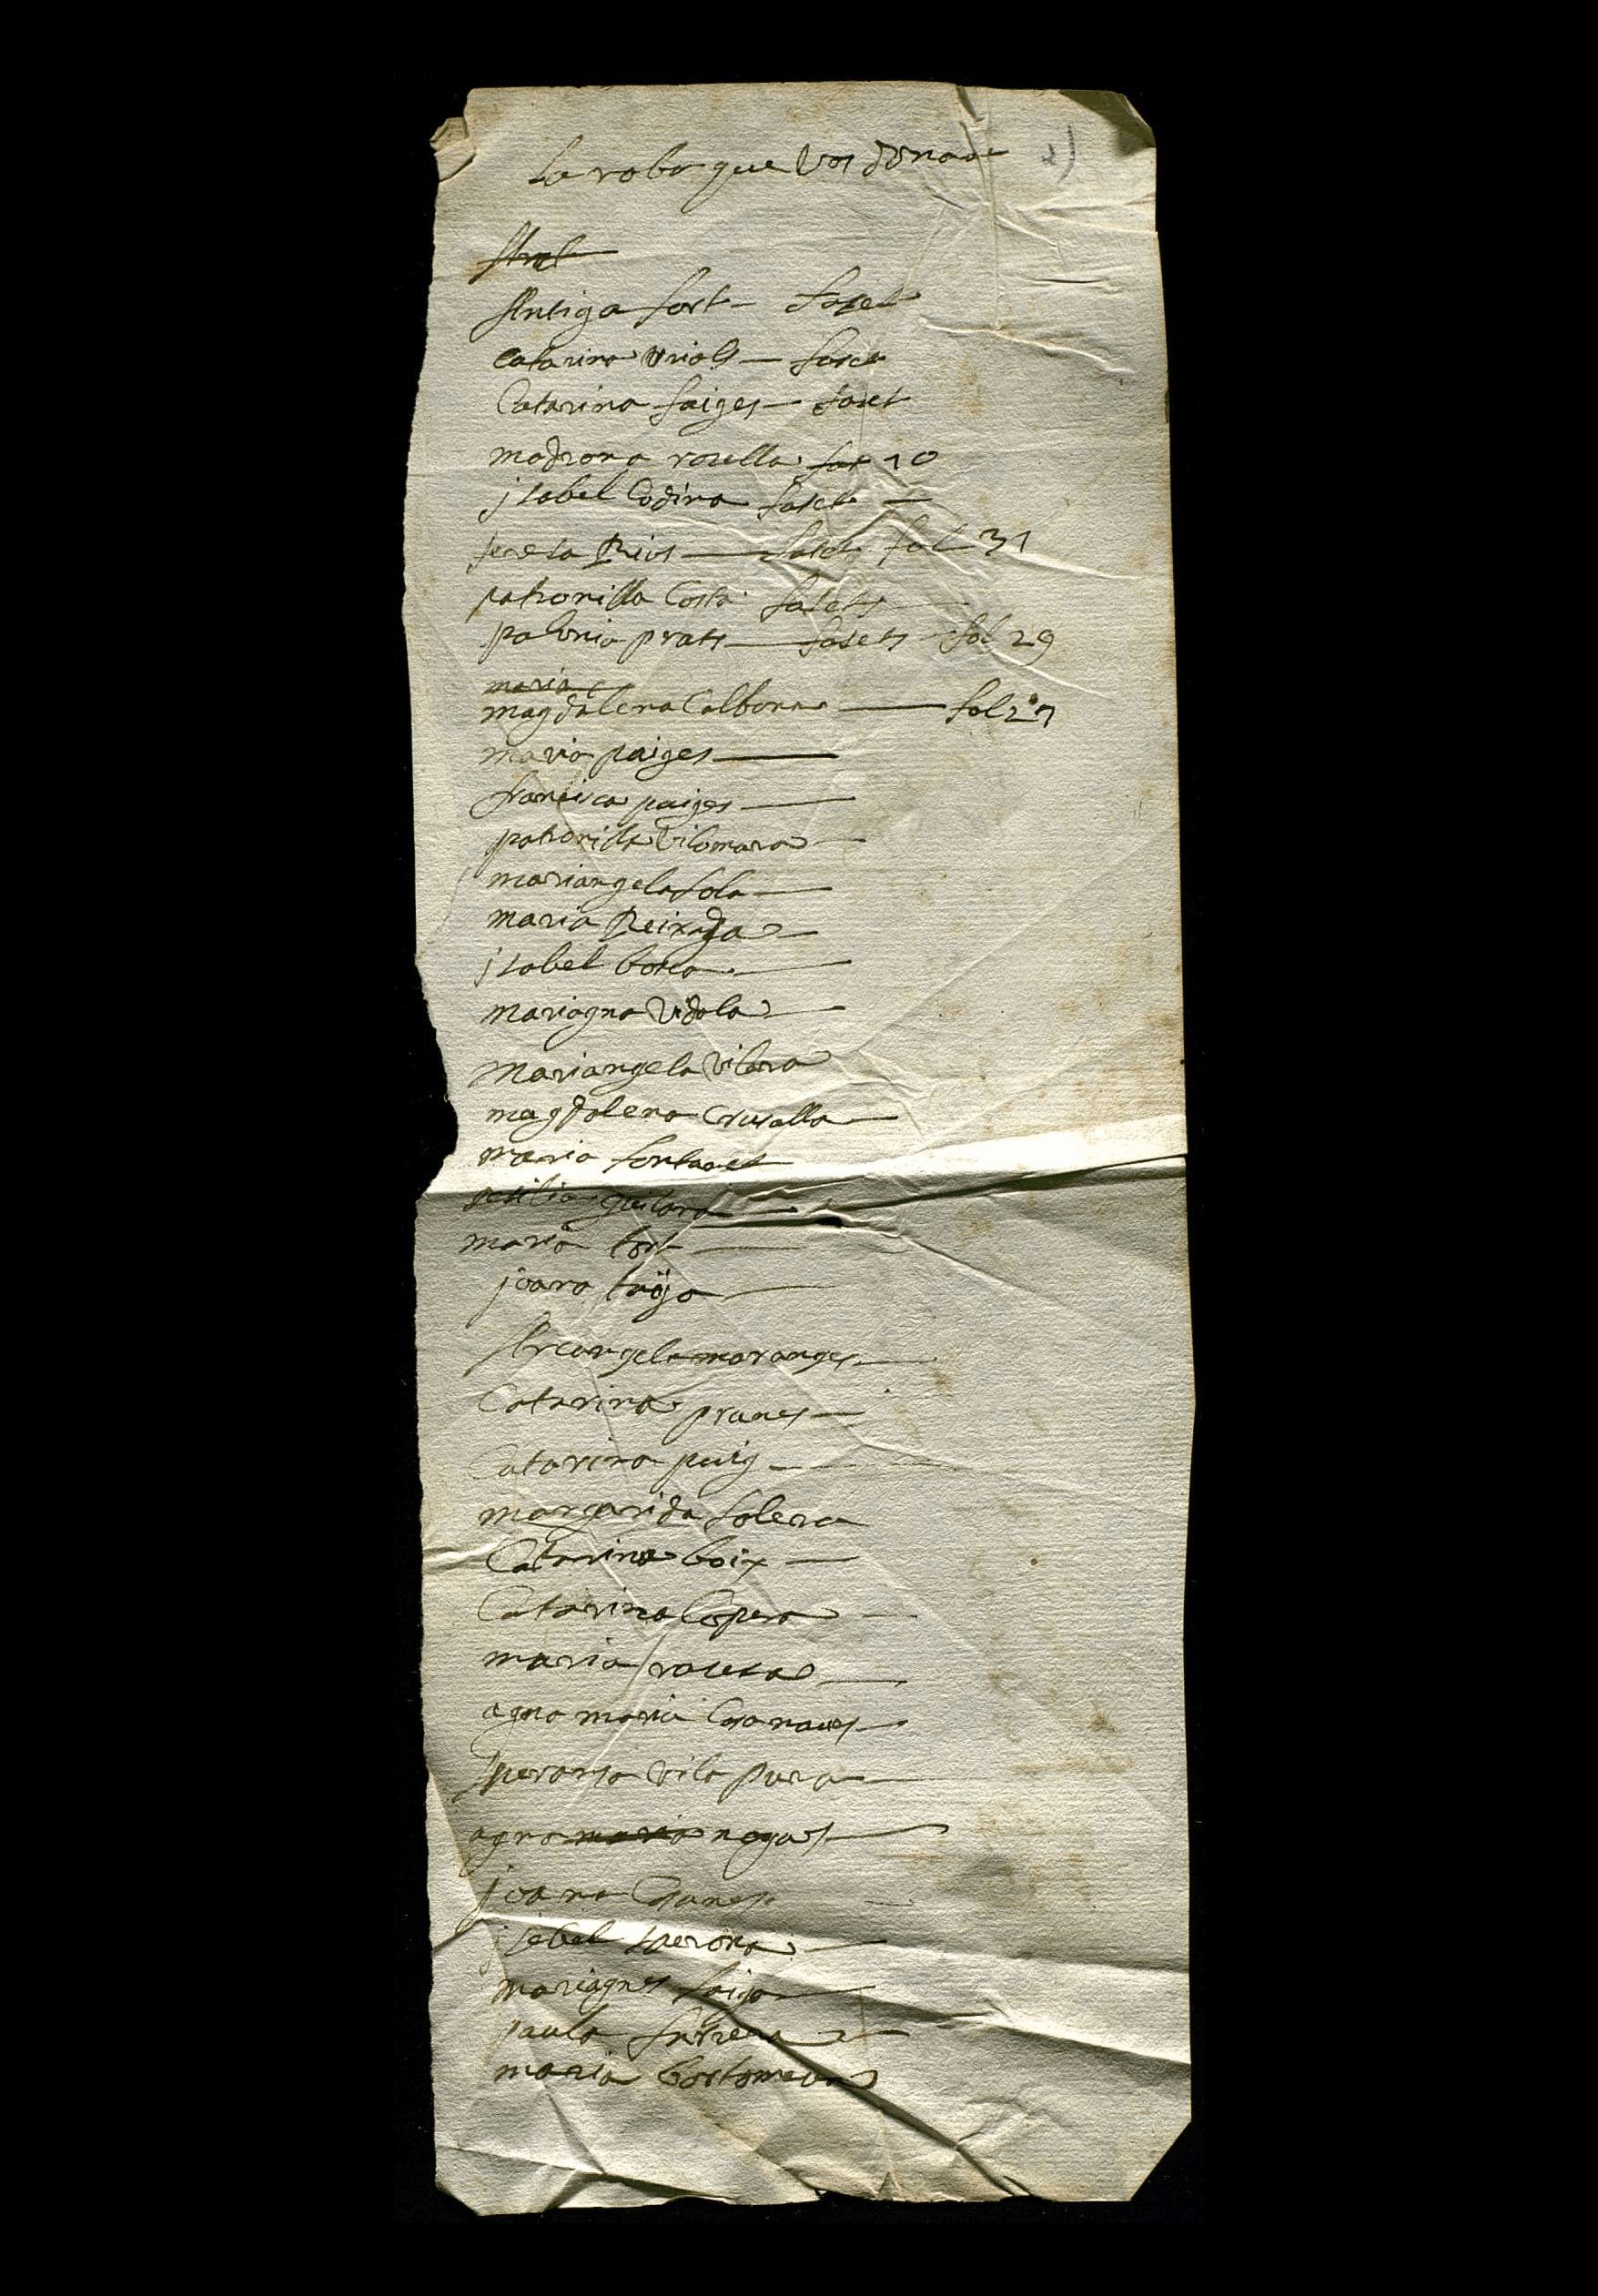 la roba que vos donare
Antiga fort — faset
Catarina Uriols — faset
Catarina faiges — faset
madrona rosella 10
jsabel Codina faset —
teresa Rius — fasets fol 31
patronilla Costa fasets
palonia prats — fasets fol 29
maria
magdalena Calbona — fol 27
maria paiges —
francisca paiges —
patronilla Vilomara —
mariangela sola —
maria Reixaga —
jsabel bosca —
mariagna Vidala —
mariangela Vilara
magdalena Crusella —
maria fontanet
sesilia guitara —
maria tort —
joana —
Arcangela maranges —
Catarina prunes —
Catarina puig —
margarida solera
Catarina boix —
Catarina Copera —
maria roseta —
agna maria Casanaues —
speransa vila pura —
agna maria nogas —
joana
jsabel —
mariagnes faiga —
paula farrera —
maria bortomeua